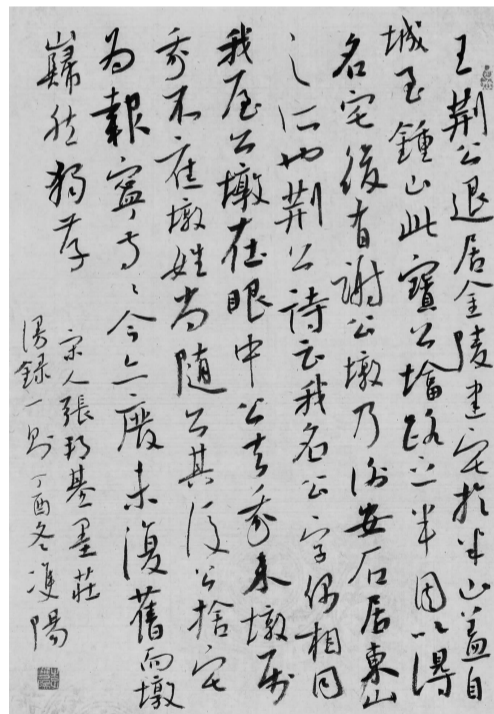 王荊公退居金陵建宅於半山蓋自
城至鍾山此寶公塔路之半因以得
名宅後有謝公墩乃謝安石居東山
之所也荊公詩云我名公字偶相同
我屋公墩在眼中公去我來墩屬
我不應墩姓尚隨公其後公捨宅
為報寧寺々今亦廢未復舊而墩
巋然獨存
宋人張邦基墨莊
漫錄一則 丁酉冬 陽